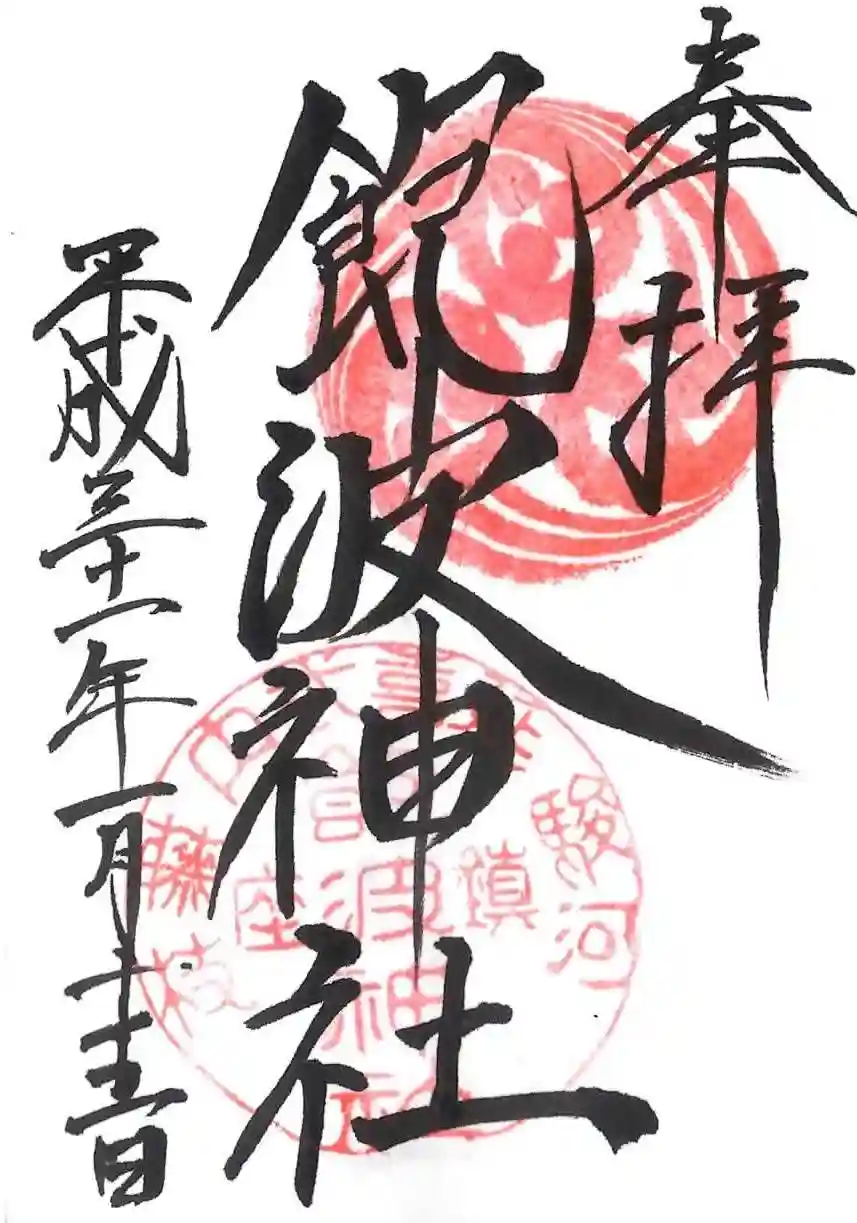 奉拝
飽波神社
平成三十一年一月二十五日
駿河
鎮座
藤枝
波神社